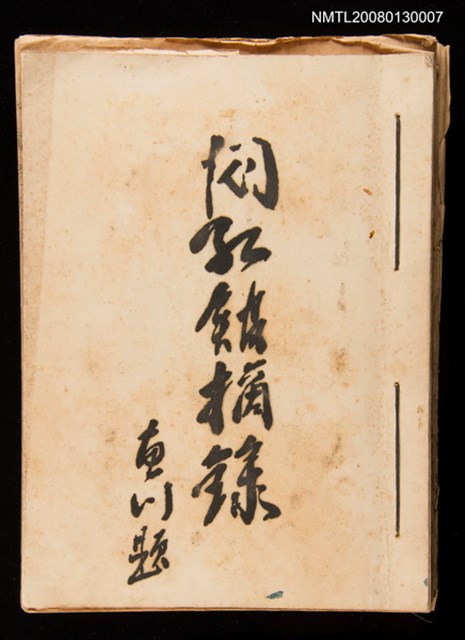 NMTL20080130007
悶紅館摘錄
惠川題